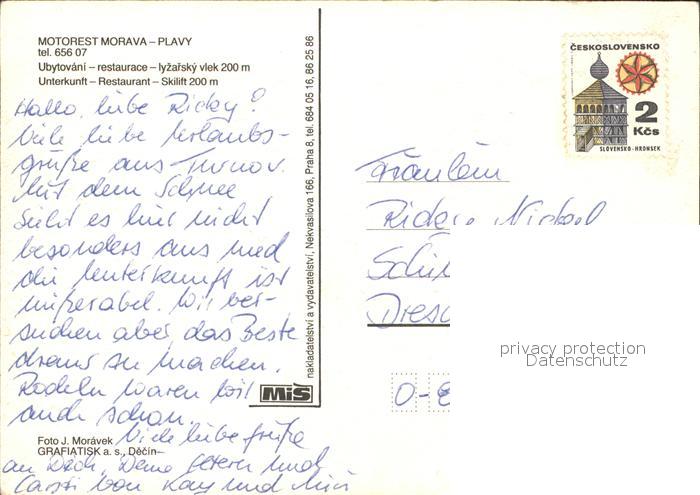 MOTOREST MORAVA – PLAVY
tel. 656 07
Ubytování – restaurace – lyžařský vlek 200 m
Unterkunft – Restaurant – Skilift 200 m
Hallo, liebe Ricky!
Viele liebe Urlaubs-
grüße aus Turnov.
Mit dem Schnee
sieht es hier nicht
besonders aus und
die Unterkunft ist
miserabel. Wir ver-
suchen aber das Beste
draus zu machen.
Rodeln waren wir
auch schon.
Viele liebe Grüße
an Dich, Deine Eltern und
von Kay und
Foto J. Morávek
GRAFIATISK a. s., Děčín
nakladatelství a vydavatelství, Nekvasilova 166, Praha 8, tel. 684 05 16, 86 25 86
MiŠ
ČESKOSLOVENSKO
2
Kčs
SLOVENSKO-HRONSEK
Fräulein
O-
privacy protection
Datenschutz